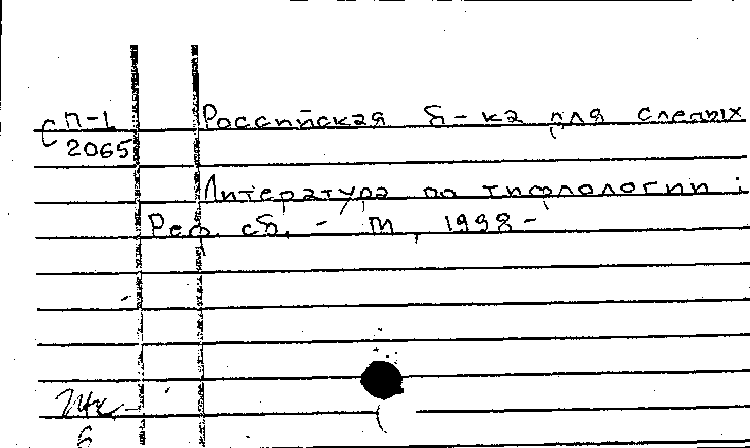 С П-1 Российская б-ка для слепых
2065
Литература по тифлологии :
Реф. сб. - М, 1998 -
6